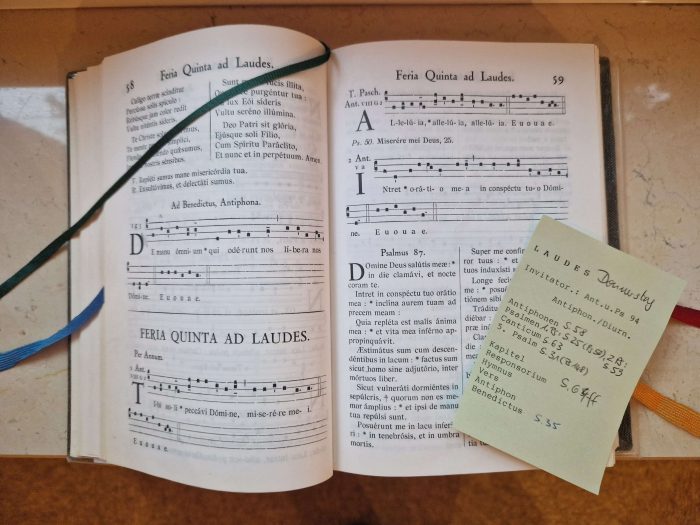 58
Feria Quinta ad Laudes.
Caligo terræ scinditur
Percussa solis spiculo :
Rebúsque jam color redit
Vultu niténtis síderis.
Te Christe
quǽsumus,
nostris sénsibus.
Sunt illita,
purgéntur tua :
lux Eói síderis
Vultu seréno illúmina.
Deo Patri sit glória,
Ejúsque soli Fílio,
Cum Spíritu Paráclito,
Et nunc et in perpétuum. Amen.
℣. Repléti sumus mane misericórdia tua.
℟. Exsultávimus, et delectáti sumus.
Ad Benedictus, Antiphona.
DE manu ómnium * qui odérunt nos líbera nos
Dómine. E u o u a e.
FERIA QUINTA AD LAUDES.
Per Annum.
1 Ant.
TIbi soli * peccávi Dómine, miserére mei.
E u o u a e.
Feria Quinta ad Laudes.
59
T. Pasch.
Ant. VIII G 2
AL-le-lú-ia, * alle-lú-ia, alle-lú-ia. E u o u a e.
Ps. 50. Miserére mei Deus, 25.
2 Ant.
INtret * o-rá-ti-o me-a in conspéctu tu-o Dómi-
ne, E u o u a e.
Psalmus 87.
DOmine Deus salútis meæ : *
in die clamávi, et nocte
coram te.
Intret in conspéctu tuo orátio
mea : * inclína aurem tuam ad
precem meam :
Quia repléta est malis ánima
mea : * et vita mea inférno ap-
propinquávit.
Æstimátus sum cum descen-
déntibus in lacum : * factus sum
sicut homo sine adjutório, inter
mórtuos liber.
Sicut vulneráti dormiéntes in
sepúlcris, † quorum non es me-
mor ámplius : * et ipsi de manu
tua repúlsi sunt.
Posuérunt me in lacu inferi-
óri : * in tenebrósis, et in umbra
mortis.
Super me confir
ror tuus : * et o
tuos induxísti s
Longe fecí
tiónem sibi
Tráditu
diébar :
LAUDES Donnerstag
Invitator.: Ant.u.Ps 94
Antiphon./Diurn.
Antiphonen S.58
Psalmen
Canticum S.63
5. Psalm
Kapitel
Responsorium
Hymnus
Vers
Antiphon
Benedictus S.35